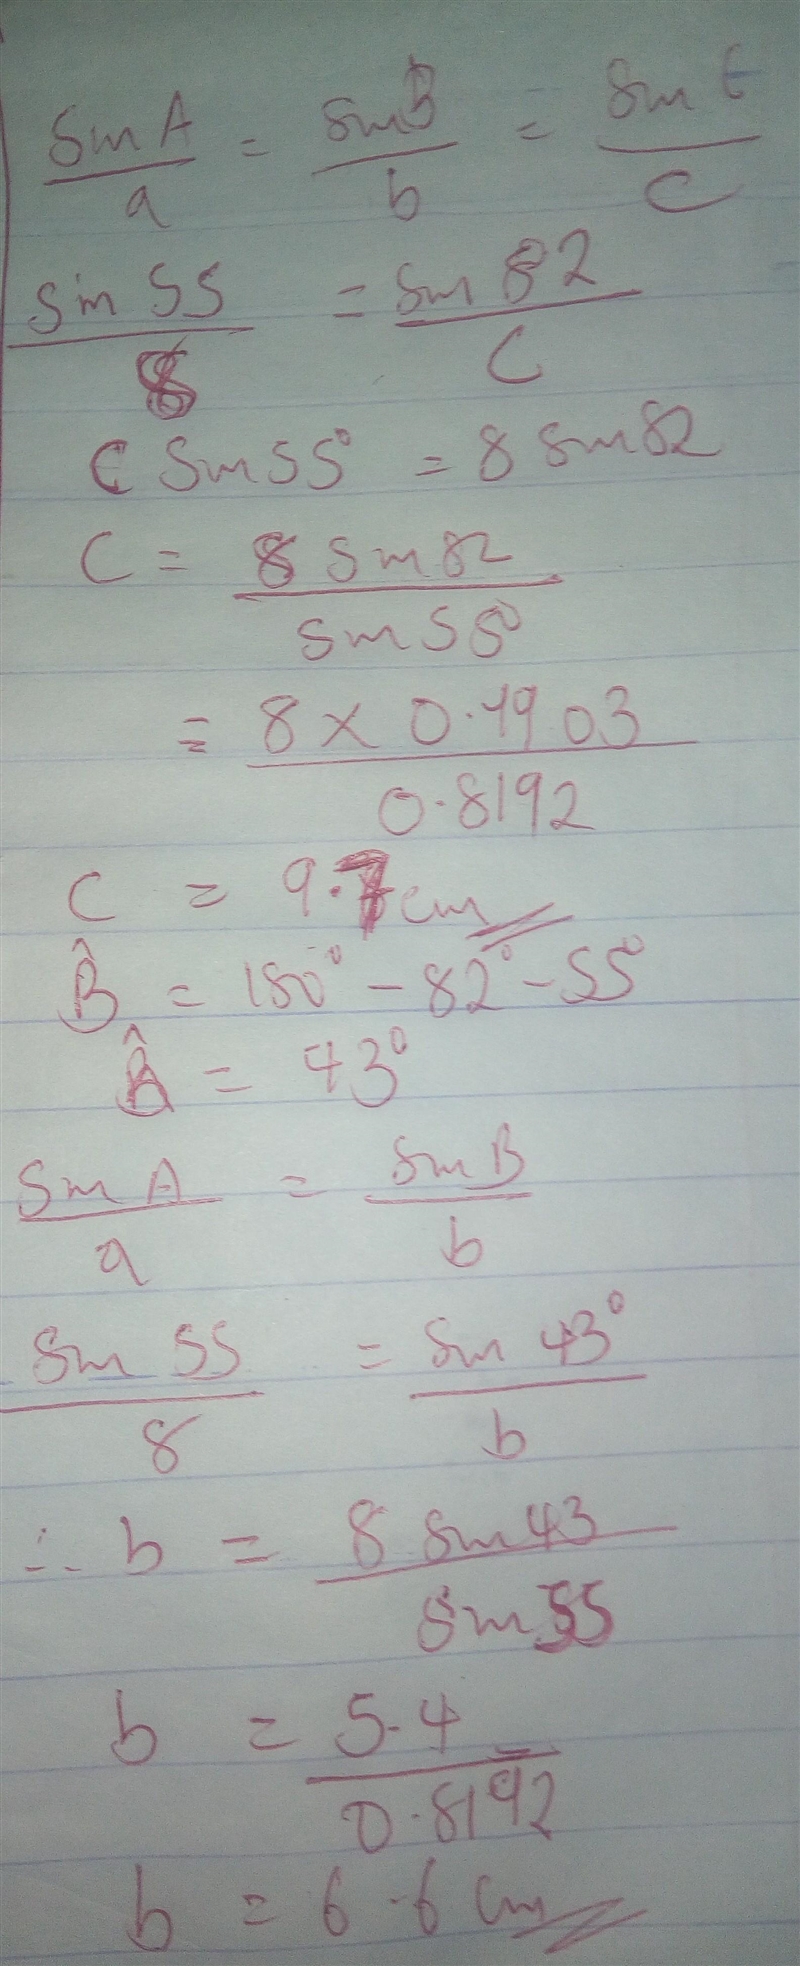 Sin A = Sin B = Sin C
a b c
Sin 55 = Sin 82
8 C
C Sin 55° = 8 Sin 82
C = 8 Sin 82
Sin 55°
= 8 × 0.9903
0.8192
C = 9.7 cm
B̂ = 180° - 82° - 55°
B̂ = 43°
Sin A = Sin B
a b
Sin 55 = Sin 43°
8 b
∴ b = 8 Sin 43
Sin 55
b = 5.4
0.8192
b = 6.6 cm